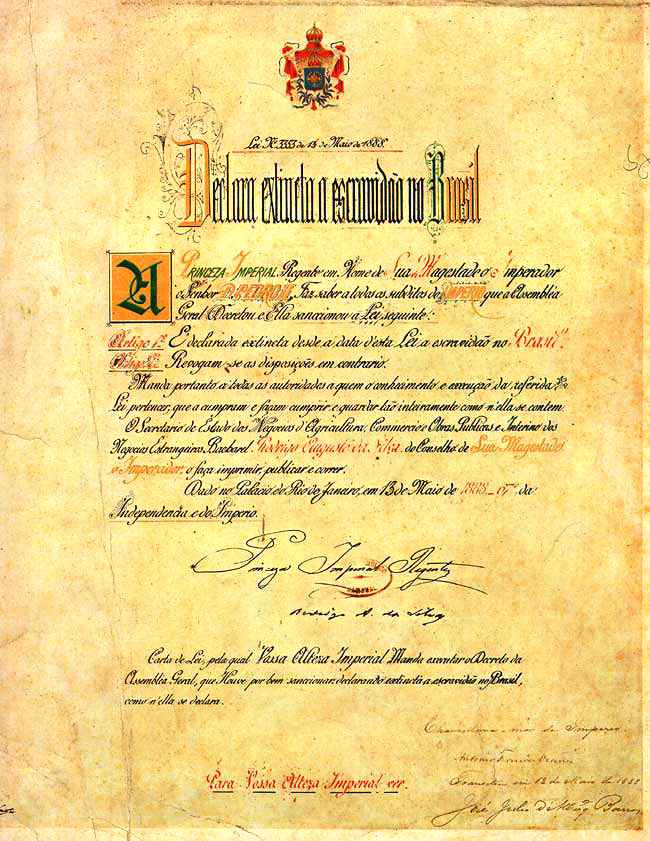 Lei Nº 3353 de 13 de Maio de 1888.
Declara extincta a escravidão no Brasil
A PRINCEZA IMPERIAL Regente em Nome de Sua Magestade o Imperador
o Senhor D. PEDRO II, Faz saber a todos os subditos do IMPERIO que a Assembléa
Geral Decretou e Ella sanccionou a Lei seguinte:
Artigo 1º É declarada extincta desde a data d'esta Lei a escravidão no Brasil.
Artigo 2º Revogam-se as disposições em contrario.
Manda portanto a todas as autoridades a quem o conhecimento e execução da referida
Lei pertencer, que a cumpram e façam cumprir e guardar tão inteiramente como n'ella se contem.
O Secretario de Estado dos Negocios d'Agricultura, Commercio e Obras Publicas e Interino dos
Negocios Estrangeiros Bacharel Rodrigo Augusto da Silva do Conselho de Sua Magestade
o Imperador, o faça imprimir, publicar e correr.
Dado no Palacio do Rio de Janeiro, em 13 de Maio de 1888_67º da
Independencia e do Imperio.
Princeza Imperial Regente
Rodrigo A. da Silva
Carta de Lei, pela qual Vossa Alteza Imperial Manda executar o Decreto da
Assembléa Geral, que Houve por bem sanccionar declarando extincta a escravidão no Brasil,
como n'ella se declara.
Chancellaria-mór do Imperio
Antonio Ferreira Vianna
Para Vossa Alteza Imperial ver.
Transitou em 13 de Maio de 1888
José Julio d'Albuqº Barros